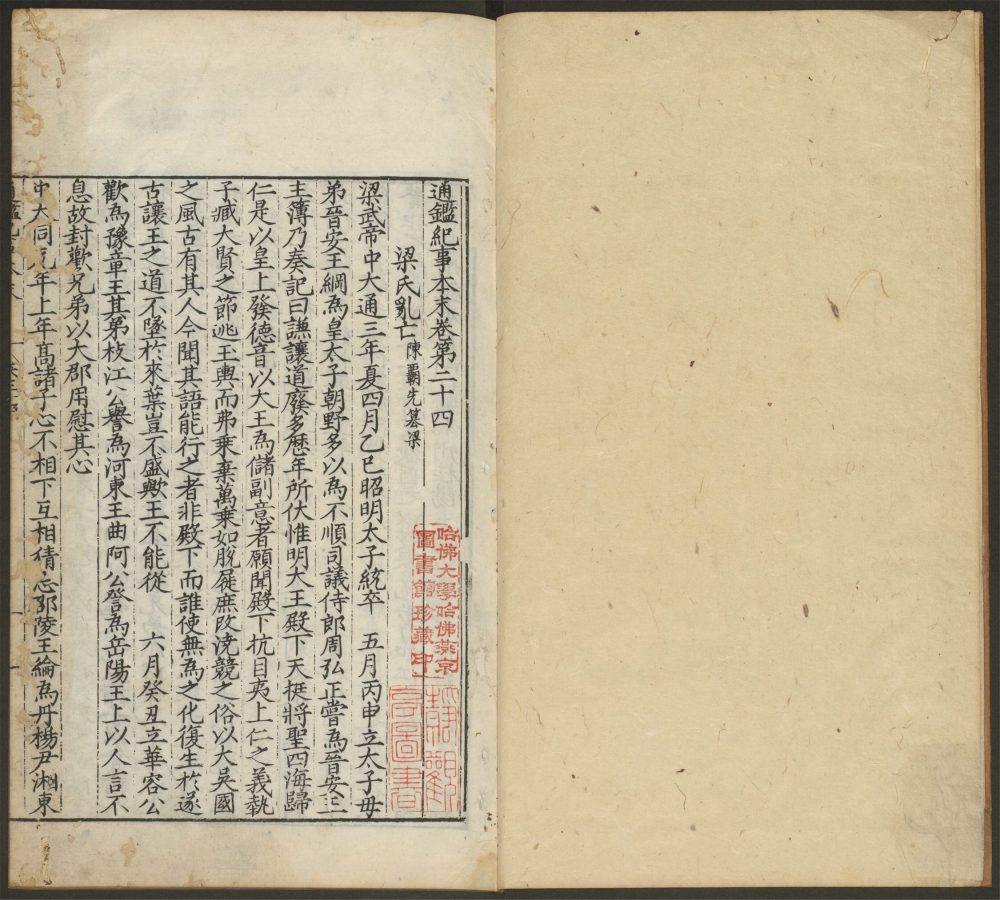 通鑑紀事本末卷第二十四
梁氏亂亡陳霸先篡梁
梁武帝中大通三年夏四月乙巳昭明太子統卒　五月丙申立太子母
弟晉安王綱爲皇太子朝野多以爲不順司議侍郎周弘正嘗爲晉安王
主簿乃奏記曰謙讓道廢多歷年所伏惟明大王殿下天挺將聖四海歸
仁是以皇上發德音以大王爲儲副意者願聞殿下抗目夷上仁之義執
子臧大賢之節逃王輿而弗乘棄萬乘如脫屣庶改澆競之俗以大吳國
之風古有其人今聞其語能行之者非殿下而誰使無爲之化復生於遂
古讓王之道不墜於來葉豈不盛歟王不能從　六月癸丑立華容公
歡爲豫章王其弟枝江公譽爲河東王曲阿公詧爲岳陽王上以人言不
息故封歡兄弟以大郡用慰其心
中大同元年上年高諸子心不相下互相猜忌邵陵王綸爲丹楊尹湘東
哈佛大學哈佛燕京
圖書館珍藏印